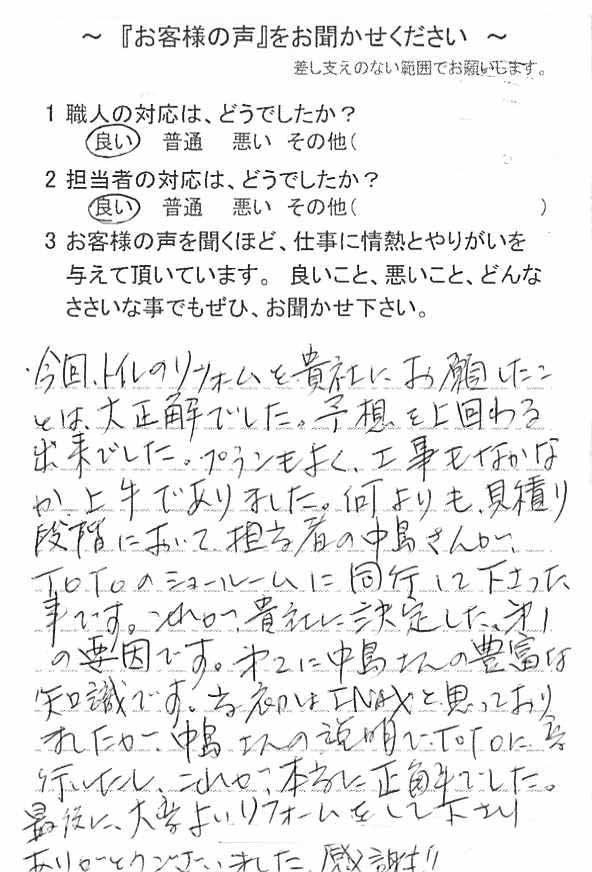 ～ 『お客様の声』をお聞かせください ～
差し支えのない範囲でお願いします。
1 職人の対応は、どうでしたか？
良い 普通 悪い その他(
2 担当者の対応は、どうでしたか？
良い 普通 悪い その他( )
3 お客様の声を聞くほど、仕事に情熱とやりがいを
与えて頂いています。 良いこと、悪いこと、どんな
ささいな事でもぜひ、お聞かせ下さい。
今回、トイレのリフォームを貴社にお願したこ
とは、大正解でした。予想を上回わる
出来でした。プランもよく、工事もなかな
か上手でありました。何よりも、見積り
段階において担当者の中島さんが、
TOTOのショールームに同行して下さった
事です。これが、貴社に決定した、第1
の要因です。第2に中島さんの豊富な
知識です。当初はINAXと思っており
ましたが、中島さんの説明で、TOTOに
行いたし、これが、本当に正解でした。
最後に、大変よいリフォームをして下さり
ありがとうございました、感謝!!